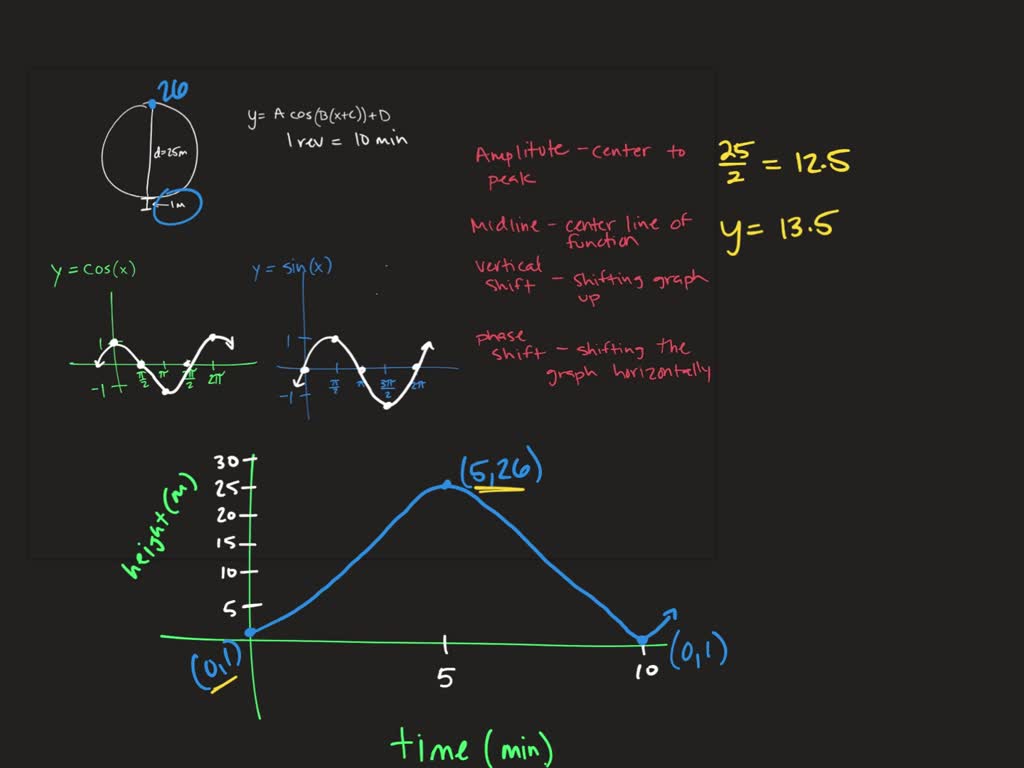 26
y= A cos(B(x+C))+D
1 rev = 10 min
d=25m
I ← 1m
Amplitude - center to
peak
25/2 = 12.5
Midline - center line of
function
y= 13.5
vertical
shift - shifting graph
up
phase
shift - shifting the
graph horizontally
y = cos(x)
1
-1
π/2 π 3π/2 2π
y = sin(x)
1
-1
π/2 π 3π/2 2π
height(m)
30
25
20
15
10
5
(5,26)
(0,1)
(0,1)
5
10
time (min)